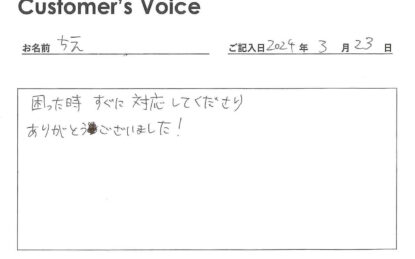 Customer's Voice
お名前 ちえ ご記入日 2024 年 3 月 23 日
困った時 すぐに 対応 してくださり
ありがとうございました！